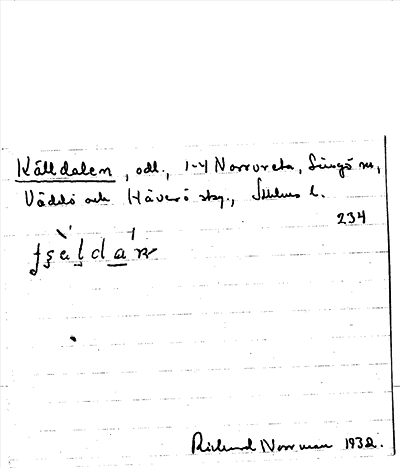 Källdalen, odl., 1-4 Norrveta, Singö sn,
Väddö och Häverö skg., Sthlms l.
234
Richard Norrman 1932.